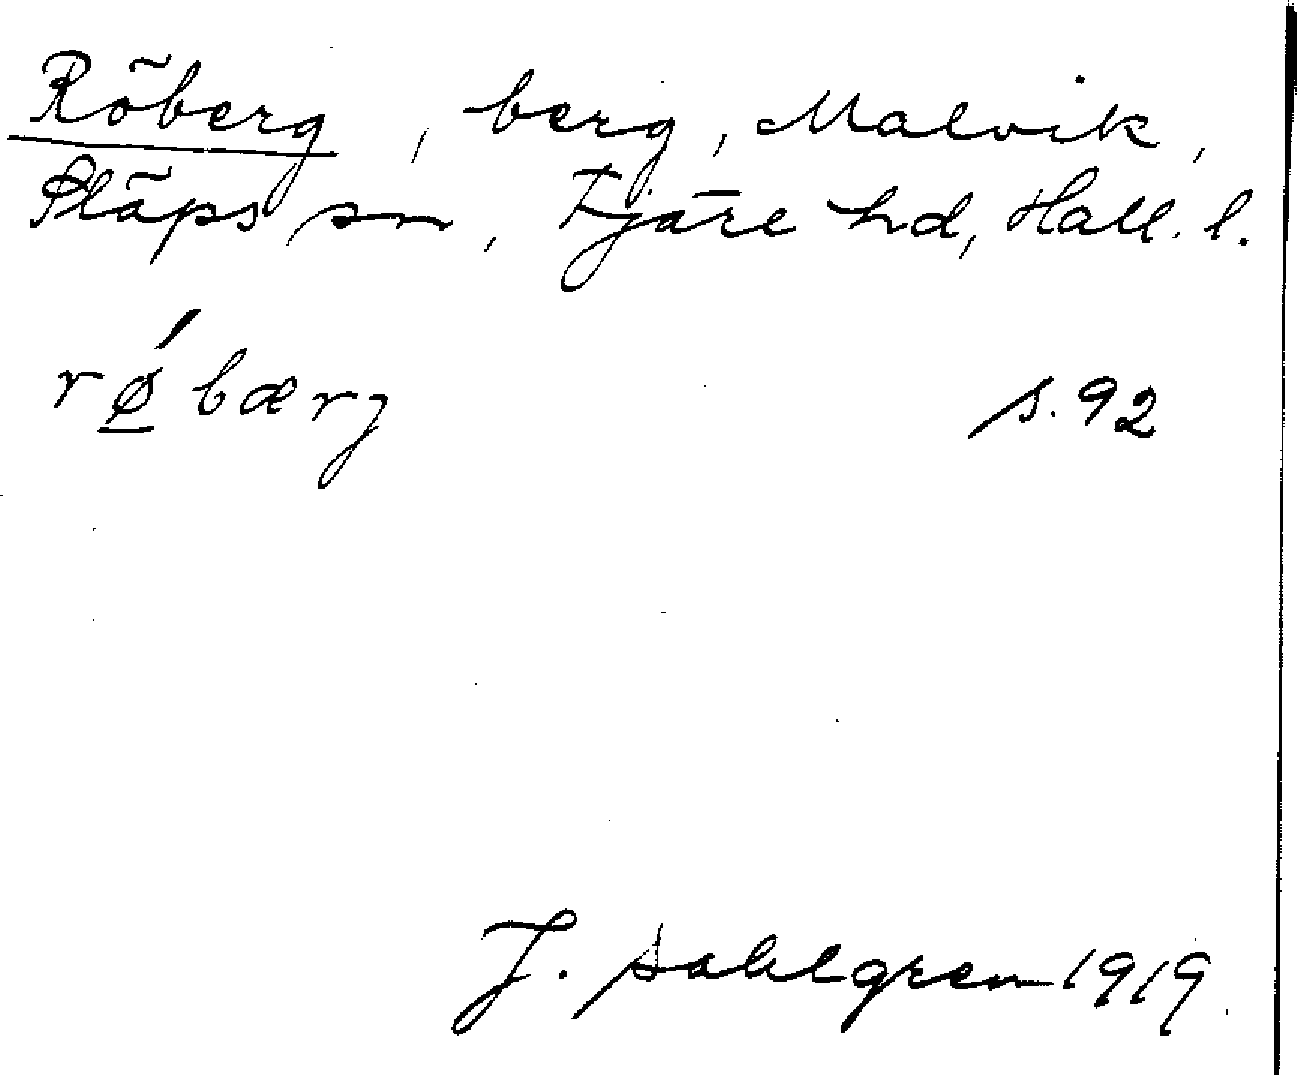 Röberg, berg, Malvik,
Släps sn, Fjäre hd, Hall. l.
rǿ̲bærj s. 92
J. Sahlgren 1919.